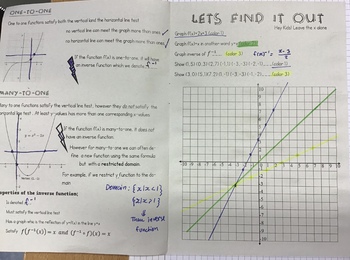 ONE-TO-ONE
One-to-one functions satisfy both the vertical and the horizontal line test
no vertical line can meet the graph more than once
no horizontal line can meet the graph more than once
If the function f(x) is one-to-one, it will have
an inverse function which we denote f⁻¹
MANY-TO-ONE
Many to one functions satisfy the vertical line test, however they do not satisfy the
horizontal line test. At least y values has more than one corresponding x-values.
If the function f(x) is many-to-one, it does not
have an inverse function.
However for many-to-one we can often de-
fine a new function using the same formula
but with a restricted domain
For example, if we restrict y function to the do-
main
Domain: {x|x<1}
{x|x>1}
Then inverse
function
Properties of the inverse function:
Is denoted f⁻¹
Must satisfy the vertical line test
Has a graph which is the reflection of y=f(x) in the line y=x
Satisfy f(f⁻¹(x)) = x and (f⁻¹∘f)(x) = x
LETS FIND IT OUT
Hey Kids! Leave the x alone
Graph f(x)=2x+3 (color 1)
Graph f(x)=x in another word y=x (color 2)
Graph inverse of f⁻¹ (color 3)